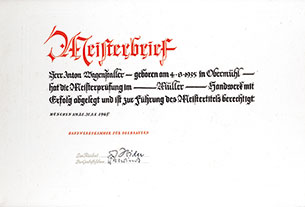 Meisterbrief
Herr Anton Wagenstaller — geboren am 4·6·1935 in Obermühl —
hat die Meisterprüfung im — Müller — Handwerk mit
Erfolg abgelegt und ist zur Führung des Meistertitels berechtigt
MÜNCHEN DEN
HANDWERKSKAMMER FÜR OBERBAYERN